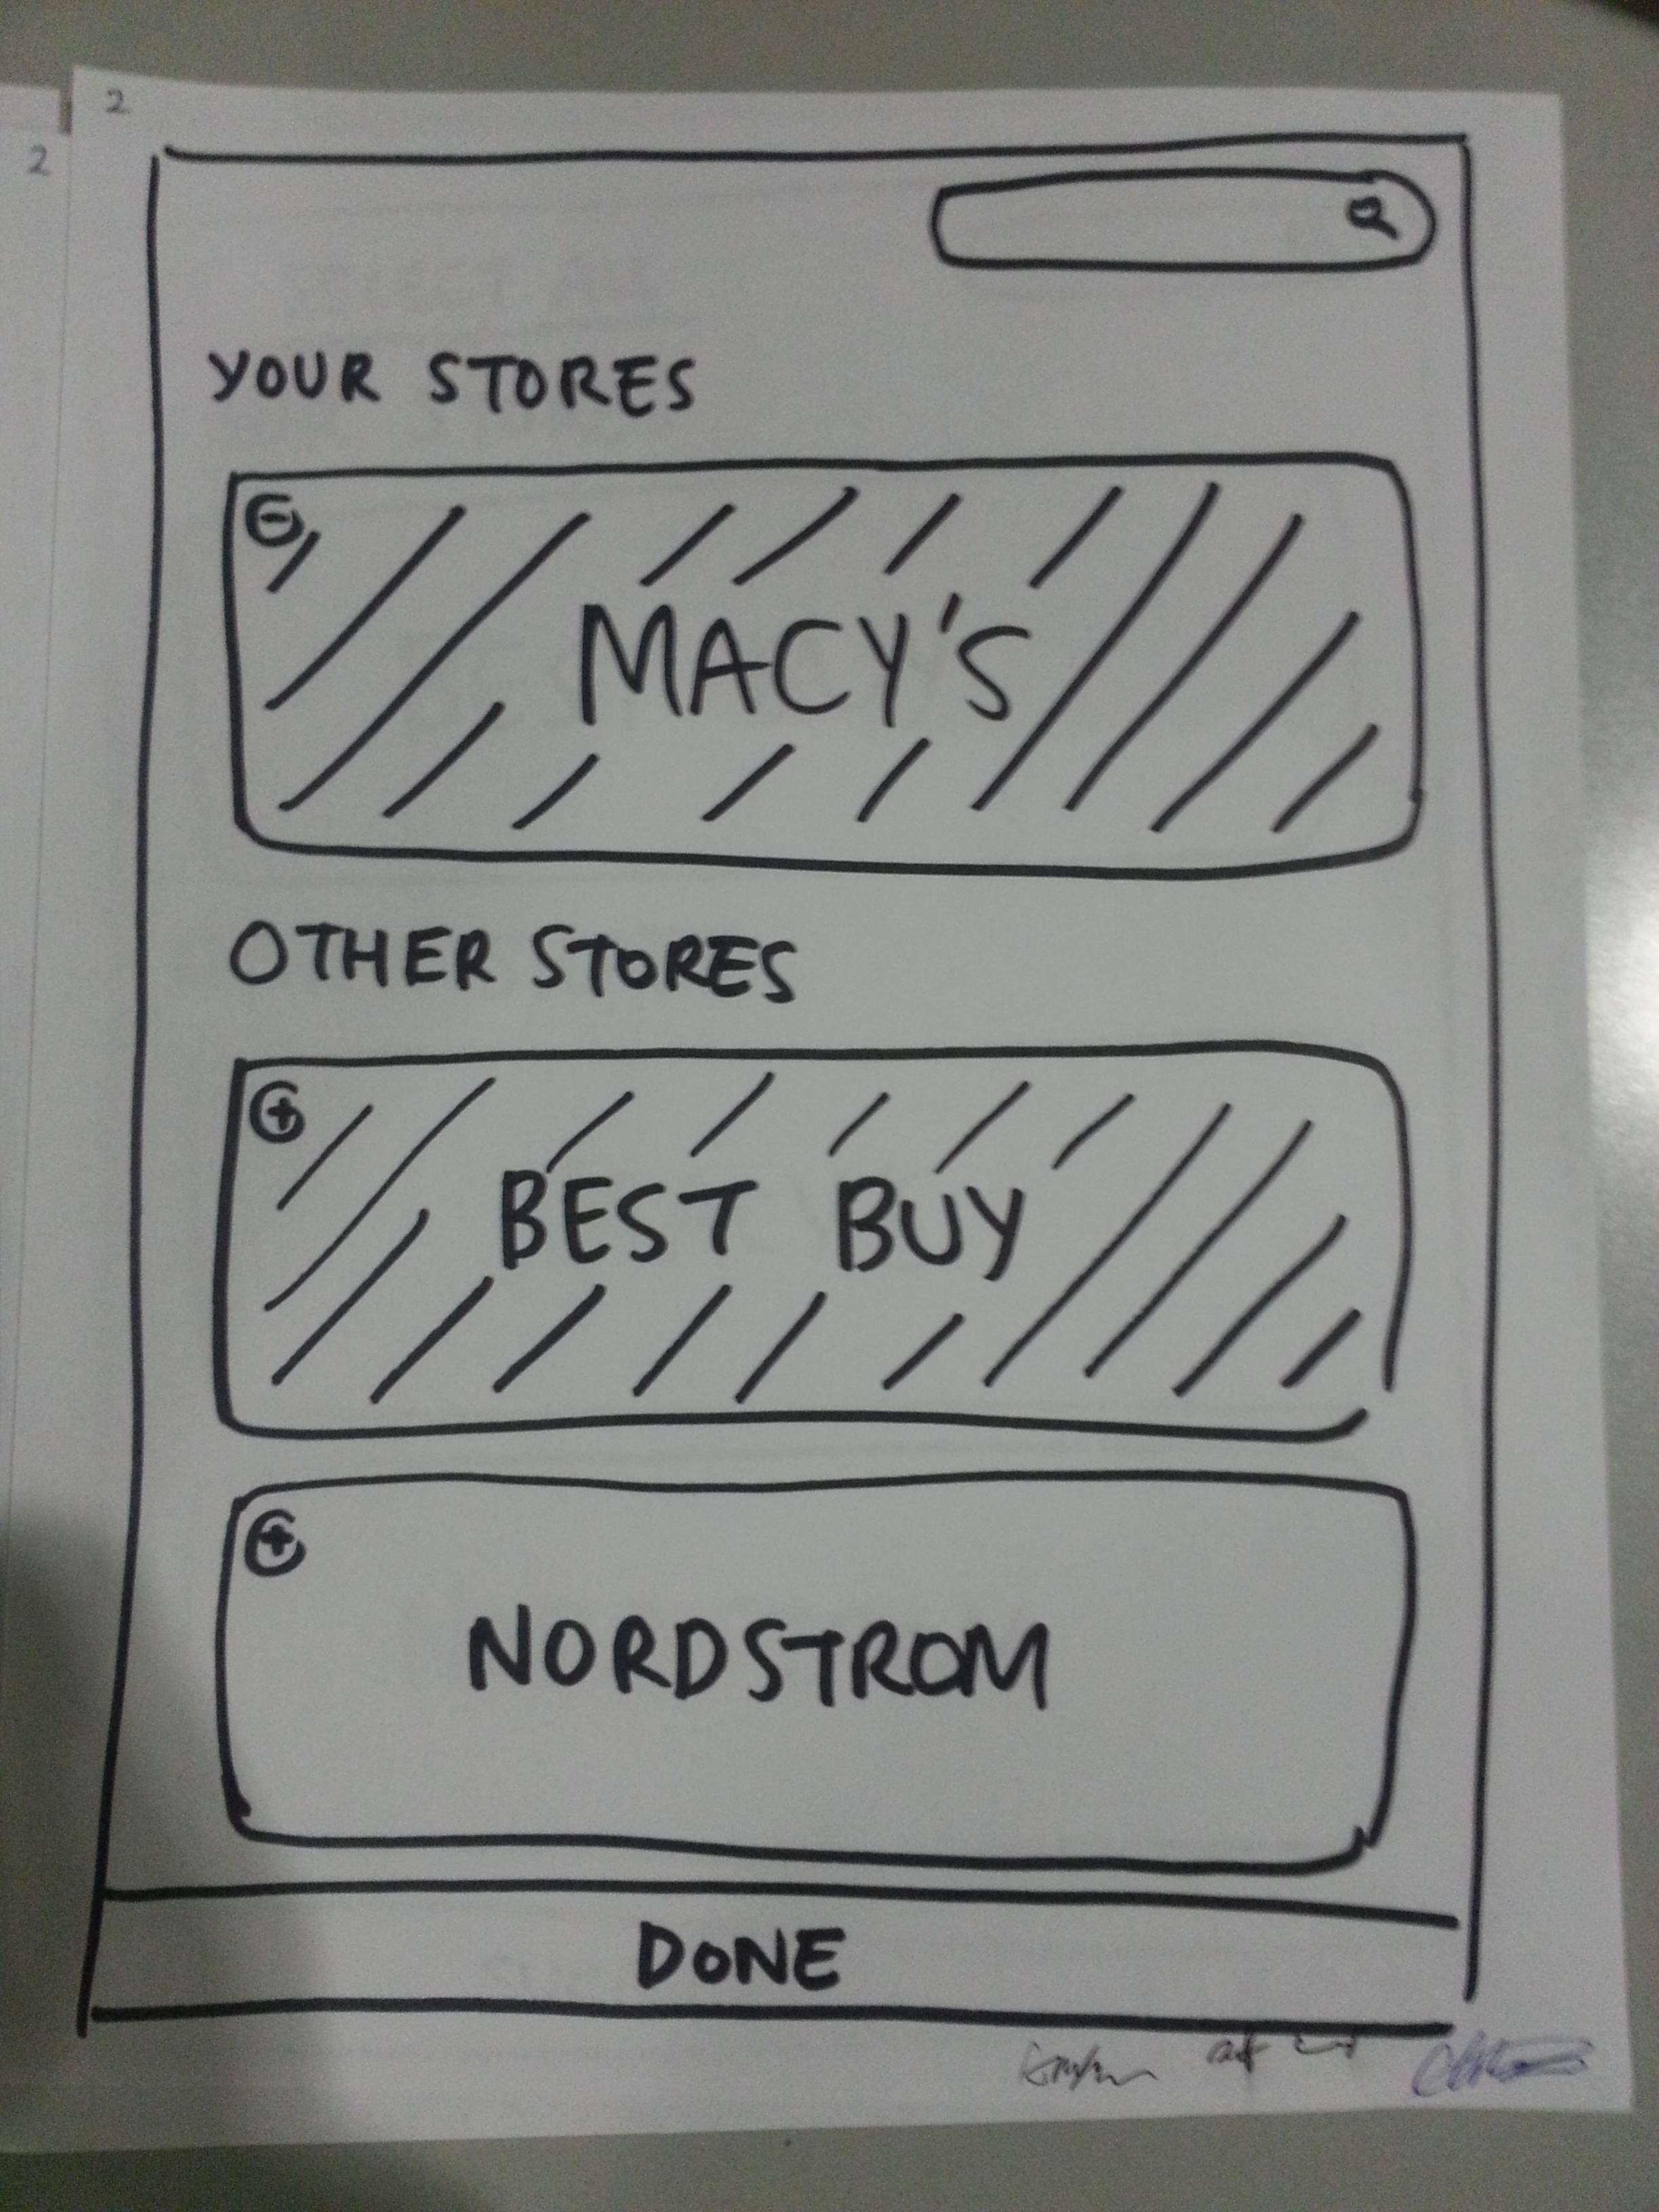 2
2
YOUR STORES
MACY'S
OTHER STORES
BEST BUY
NORDSTROM
DONE